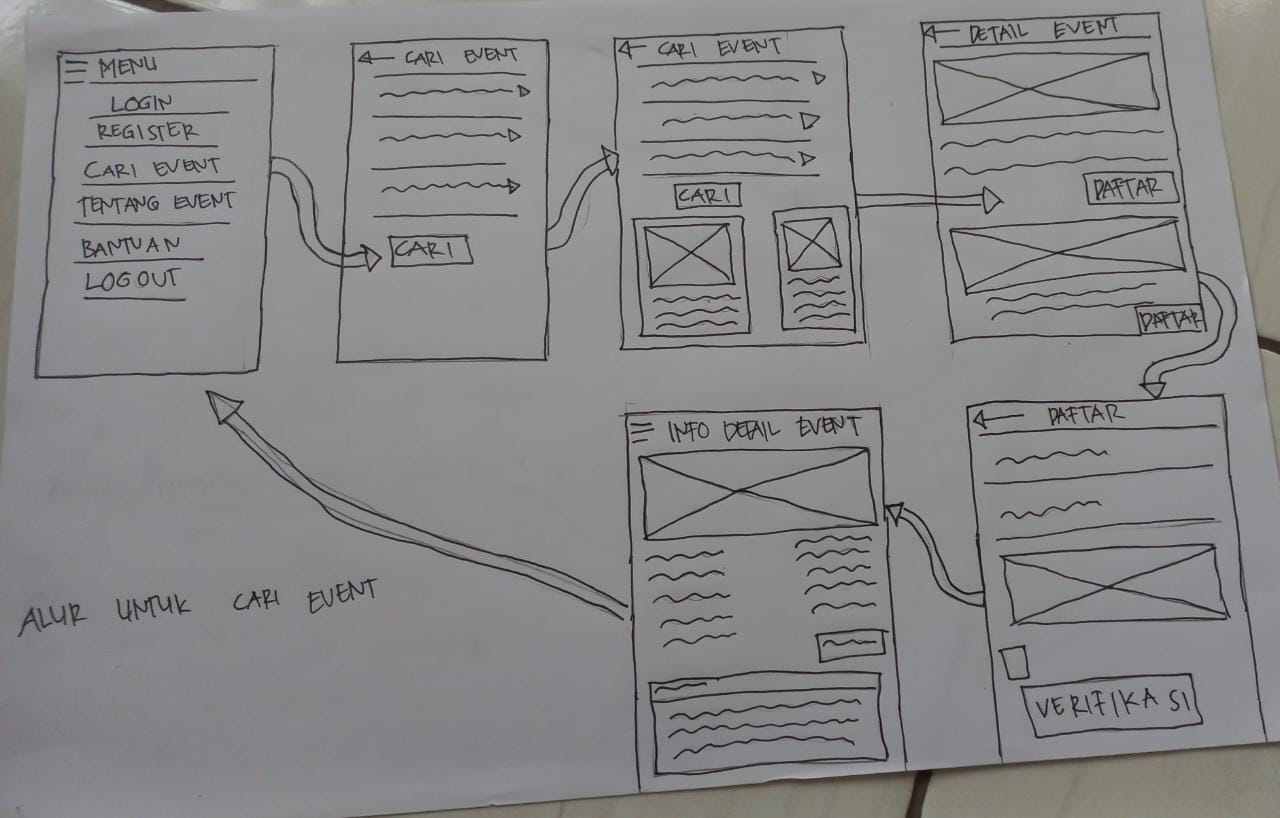 MENU
LOGIN
REGISTER
CARI EVENT
TENTANG EVENT
BANTUAN
LOGOUT
CARI EVENT
CARI
CARI EVENT
CARI
DETAIL EVENT
DAFTAR
DAFTAR
DAFTAR
VERIFIKASI
INFO DETAIL EVENT
ALUR UNTUK CARI EVENT